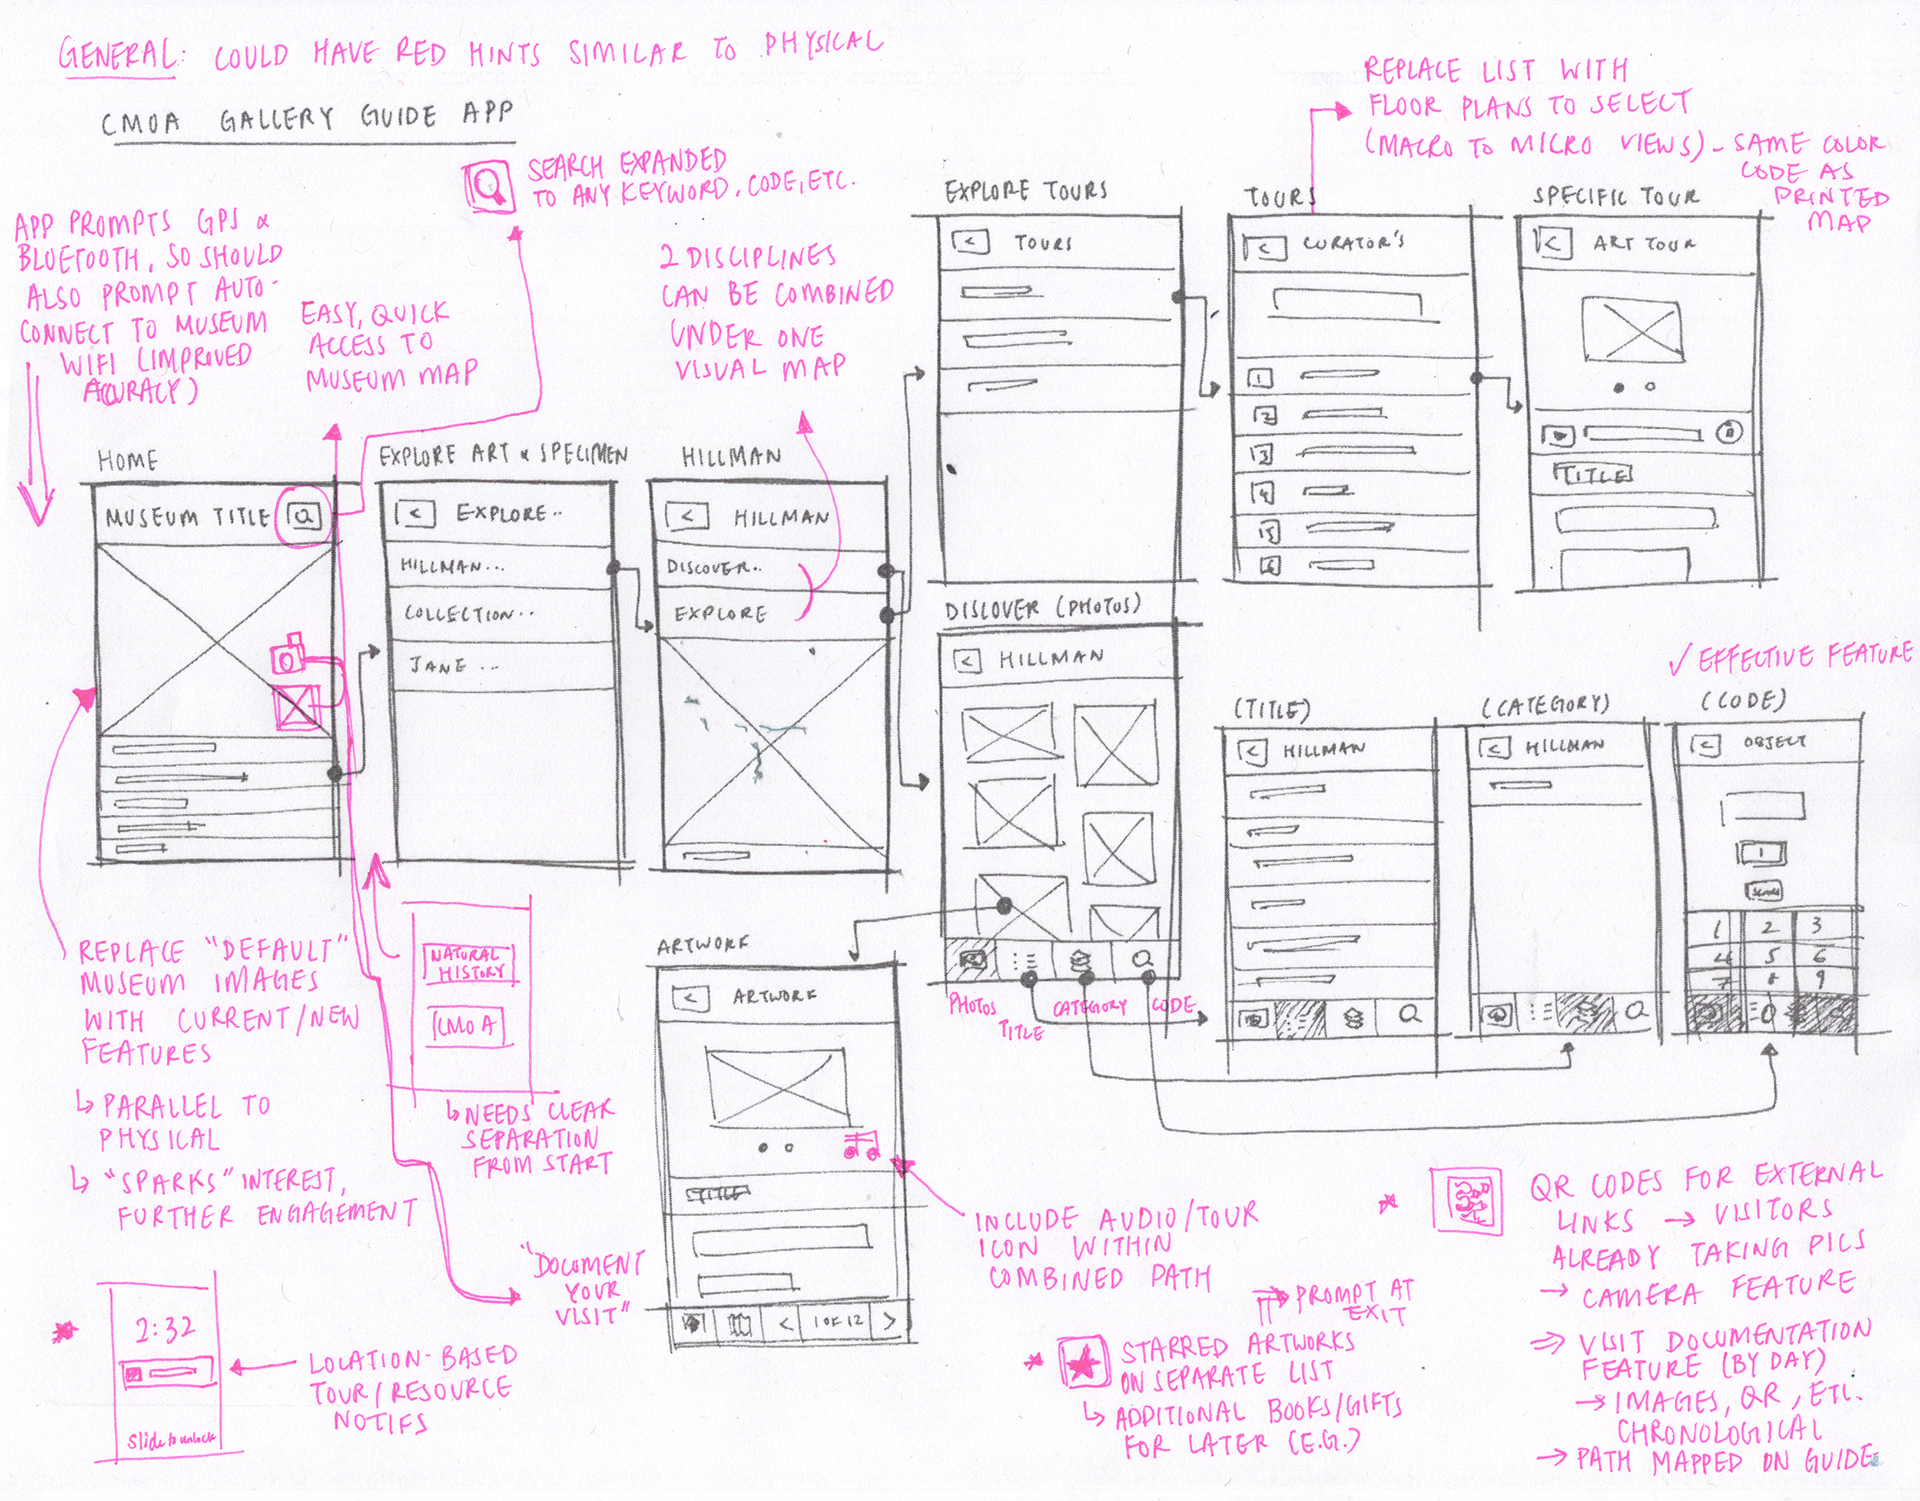 GENERAL: COULD HAVE RED HINTS SIMILAR TO PHYSICAL
CMOA GALLERY GUIDE APP
SEARCH EXPANDED
TO ANY KEYWORD, CODE, ETC.
REPLACE LIST WITH
FLOOR PLANS TO SELECT
(MACRO TO MICRO VIEWS) - SAME COLOR
CODE AS
PRINTED
MAP
APP PROMPTS GPS &
BLUETOOTH, SO SHOULD
ALSO PROMPT AUTO-
CONNECT TO MUSEUM
WIFI (IMPROVED
ACCURACY)
EASY, QUICK
ACCESS TO
MUSEUM MAP
2 DISCIPLINES
CAN BE COMBINED
UNDER ONE
VISUAL MAP
EXPLORE TOURS
< TOURS
TOURS
< CURATOR'S
1
2
3
4
5
6
SPECIFIC TOUR
< ART TOUR
TITLE
HOME
MUSEUM TITLE
EXPLORE ART & SPECIMEN
< EXPLORE..
HILLMAN...
COLLECTION..
JANE ...
HILLMAN
< HILLMAN
DISCOVER..
EXPLORE
DISCOVER (PHOTOS)
< HILLMAN
PHOTOS
TITLE
CATEGORY
CODE
(TITLE)
< HILLMAN
(CATEGORY)
< HILLMAN
✓ EFFECTIVE FEATURE
(CODE)
< OBJECT
1
SEARCH
1 2 3
4 5 6
7 8 9
0
ARTWORK
< ARTWORK
TITLE
< 1 OF 12 >
REPLACE "DEFAULT"
MUSEUM IMAGES
WITH CURRENT/NEW
FEATURES
↳ PARALLEL TO
PHYSICAL
↳ "SPARKS" INTEREST,
FURTHER ENGAGEMENT
NATURAL
HISTORY
CMOA
↳ NEEDS CLEAR
SEPARATION
FROM START
"DOCUMENT
YOUR
VISIT"
INCLUDE AUDIO/TOUR
ICON WITHIN
COMBINED PATH
2:32
slide to unlock
LOCATION-BASED
TOUR/RESOURCE
NOTIFS
⇒ PROMPT AT
EXIT
STARRED ARTWORKS
ON SEPARATE LIST
↳ ADDITIONAL BOOKS/GIFTS
FOR LATER (E.G.)
QR CODES FOR EXTERNAL
LINKS → VISITORS
ALREADY TAKING PICS
→ CAMERA FEATURE
⇒ VISIT DOCUMENTATION
FEATURE (BY DAY)
→ IMAGES, QR, ETC.
CHRONOLOGICAL
→ PATH MAPPED ON GUIDE